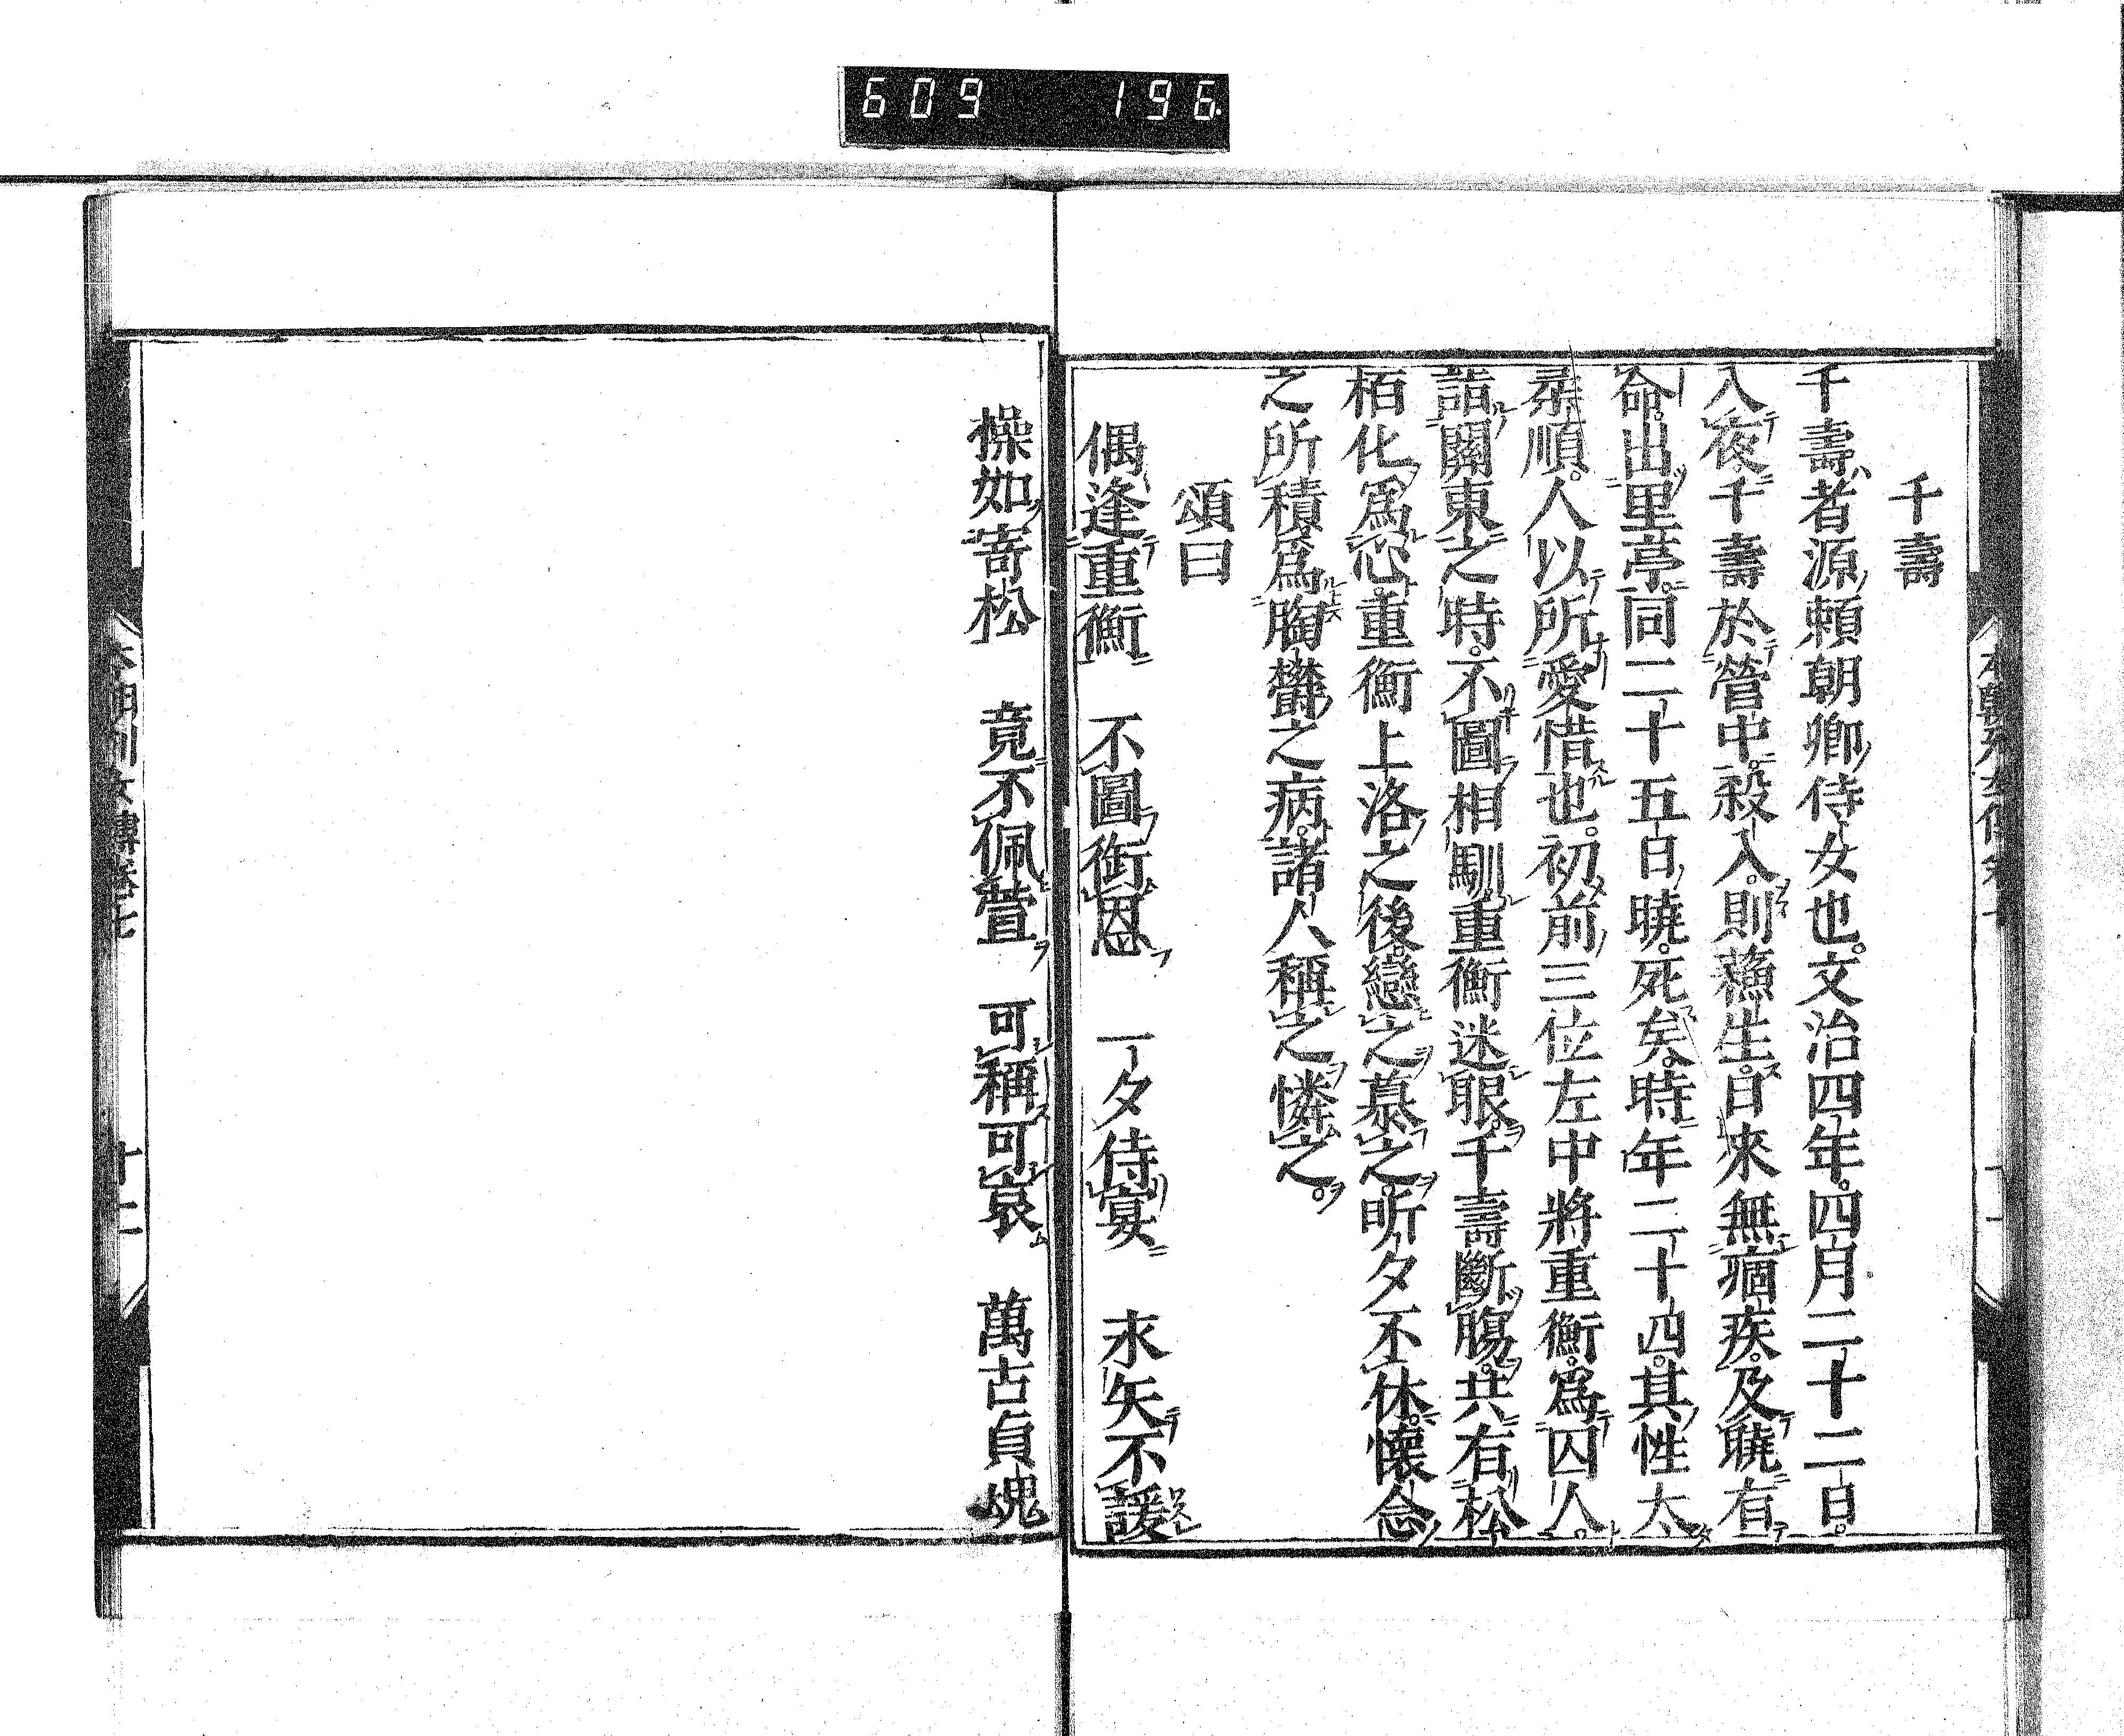 609 196
千壽
千壽者源頼朝卿侍女也。文治四年。四月二十二日。
入夜千壽於營中。殺入。則蘓生。日來無痼疾。及曉有
命。出里亭。同二十五日曉。死矣。時年二十四。其性太
柔順。人以所愛惜也。初前三位左中將重衡。爲囚人。
詰關東之時。不圖相馴。重衡迷眼。千壽斷膓。共有松
栢化爲心。重衡上洛之後。戀之慕之。昕夕不休。懷念
之所積。爲胸欝之病。諸人稱之憐之。
頌曰
偶逢重衡 不圖銜恩 一夕侍宴 求矢不諼
操如寄松 竟不佩萱 可稱可哀 萬古貞魂
本朝列女傳卷七
十二